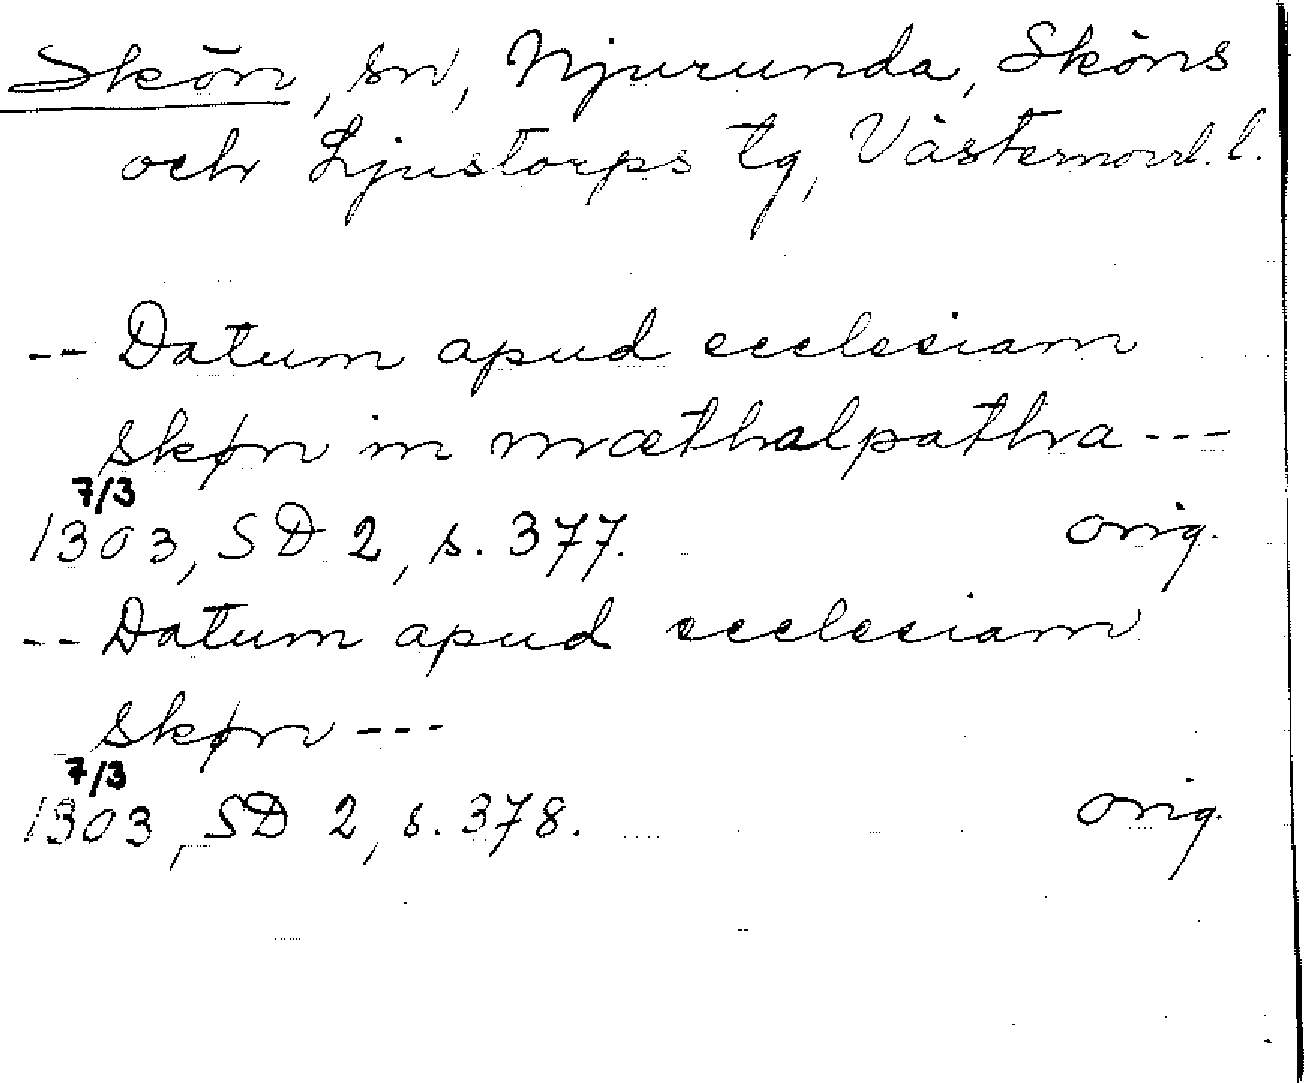 Skön, sn, Njurunda, Sköns
och Ljustorps tg, Västernorrl. l.
-- Datum apud ecclesiam
skøn in mæthalpathra ---
7/3
1303, SD 2, s. 377. orig.
-- Datum apud ecclesiam
skøn ---
7/3
1303, SD 2, s. 378. orig.